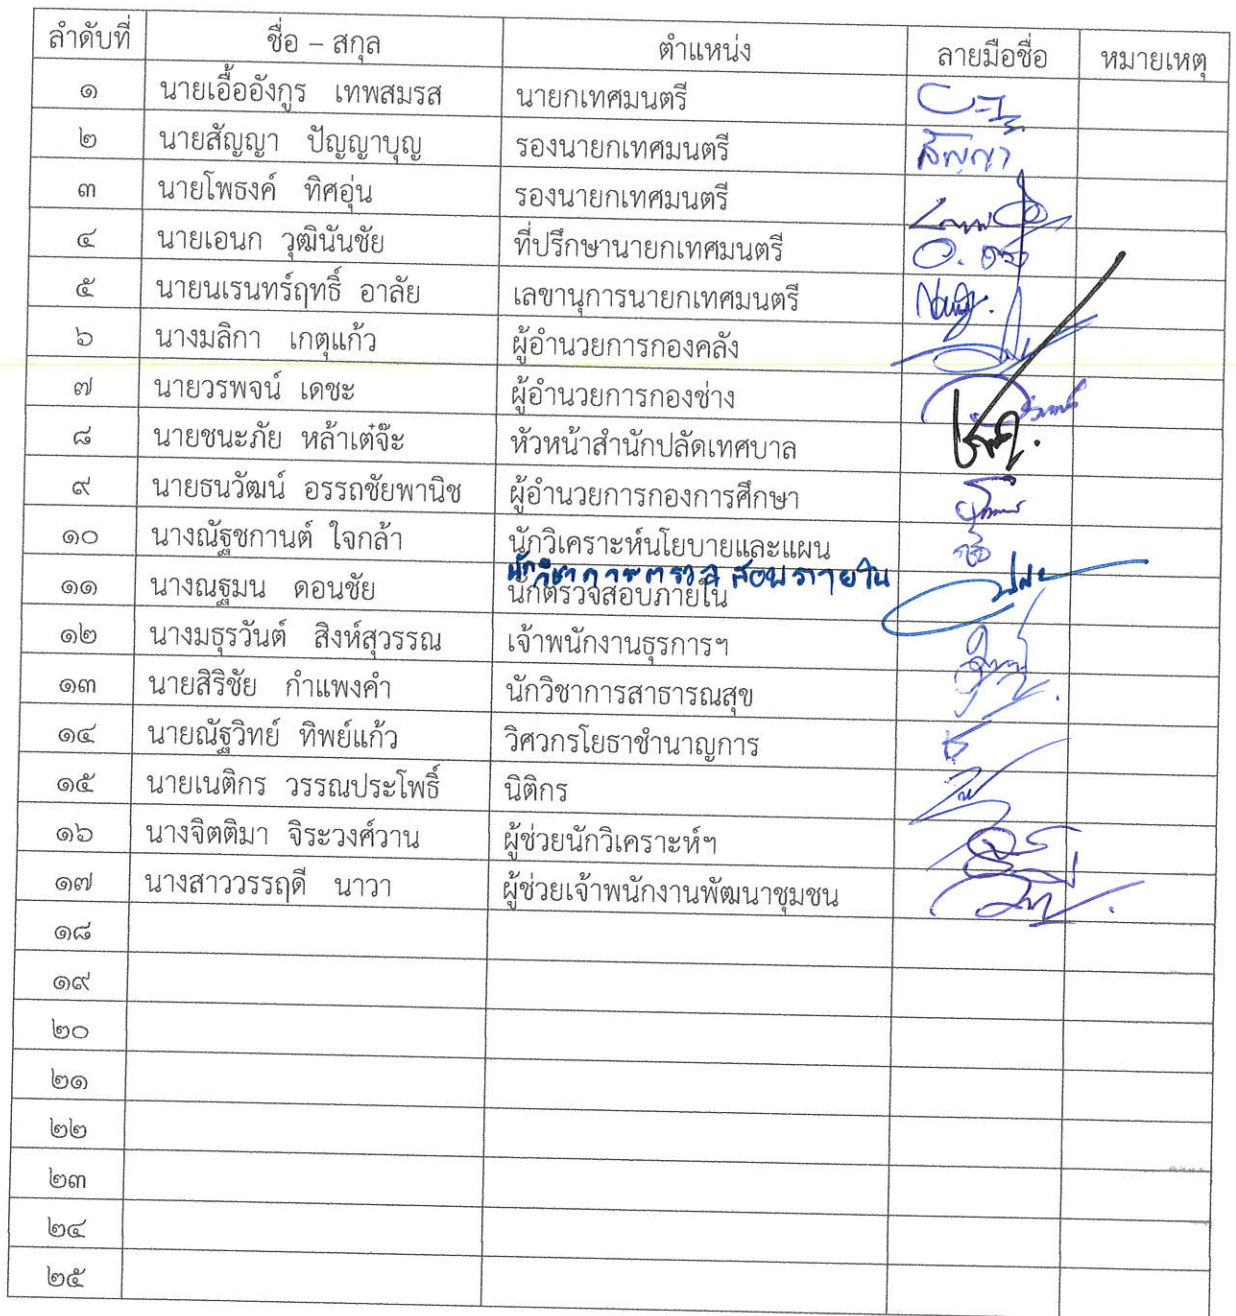 ลำดับที่ ชื่อ – สกุล ตำแหน่ง ลายมือชื่อ หมายเหตุ
๑ นายเอื้ออังกูร เทพสมรส นายกเทศมนตรี
๒ นายสัญญา ปัญญาบุญ รองนายกเทศมนตรี สัญญา
๓ นายโพธงค์ ทิศอุ่น รองนายกเทศมนตรี
๔ นายเอนก วุฒินันชัย ที่ปรึกษานายกเทศมนตรี
๕ นายนเรนทร์ฤทธิ์ อาลัย เลขานุการนายกเทศมนตรี
๖ นางมลิกา เกตุแก้ว ผู้อำนวยการกองคลัง
๗ นายวรพจน์ เดชะ ผู้อำนวยการกองช่าง
๘ นายชนะภัย หล้าเต๋จ๊ะ หัวหน้าสำนักปลัดเทศบาล
๙ นายธนวัฒน์ อรรถชัยพานิช ผู้อำนวยการกองการศึกษา
๑๐ นางณัฐชกานต์ ใจกล้า นักวิเคราะห์นโยบายและแผน
นักวิชาการตรวจสอบภายใน
๑๑ นางณฐมน ดอนชัย นักตรวจสอบภายใน
๑๒ นางมธุรวันต์ สิงห์สุวรรณ เจ้าพนักงานธุรการฯ
๑๓ นายสิริชัย กำแพงคำ นักวิชาการสาธารณสุข
๑๔ นายณัฐวิทย์ ทิพย์แก้ว วิศวกรโยธาชำนาญการ
๑๕ นายเนติกร วรรณประโพธิ์ นิติกร
๑๖ นางจิตติมา จิระวงศ์วาน ผู้ช่วยนักวิเคราะห์ฯ
๑๗ นางสาววรรฤดี นาวา ผู้ช่วยเจ้าพนักงานพัฒนาชุมชน
๑๘
๑๙
๒๐
๒๑
๒๒
๒๓
๒๔
๒๕